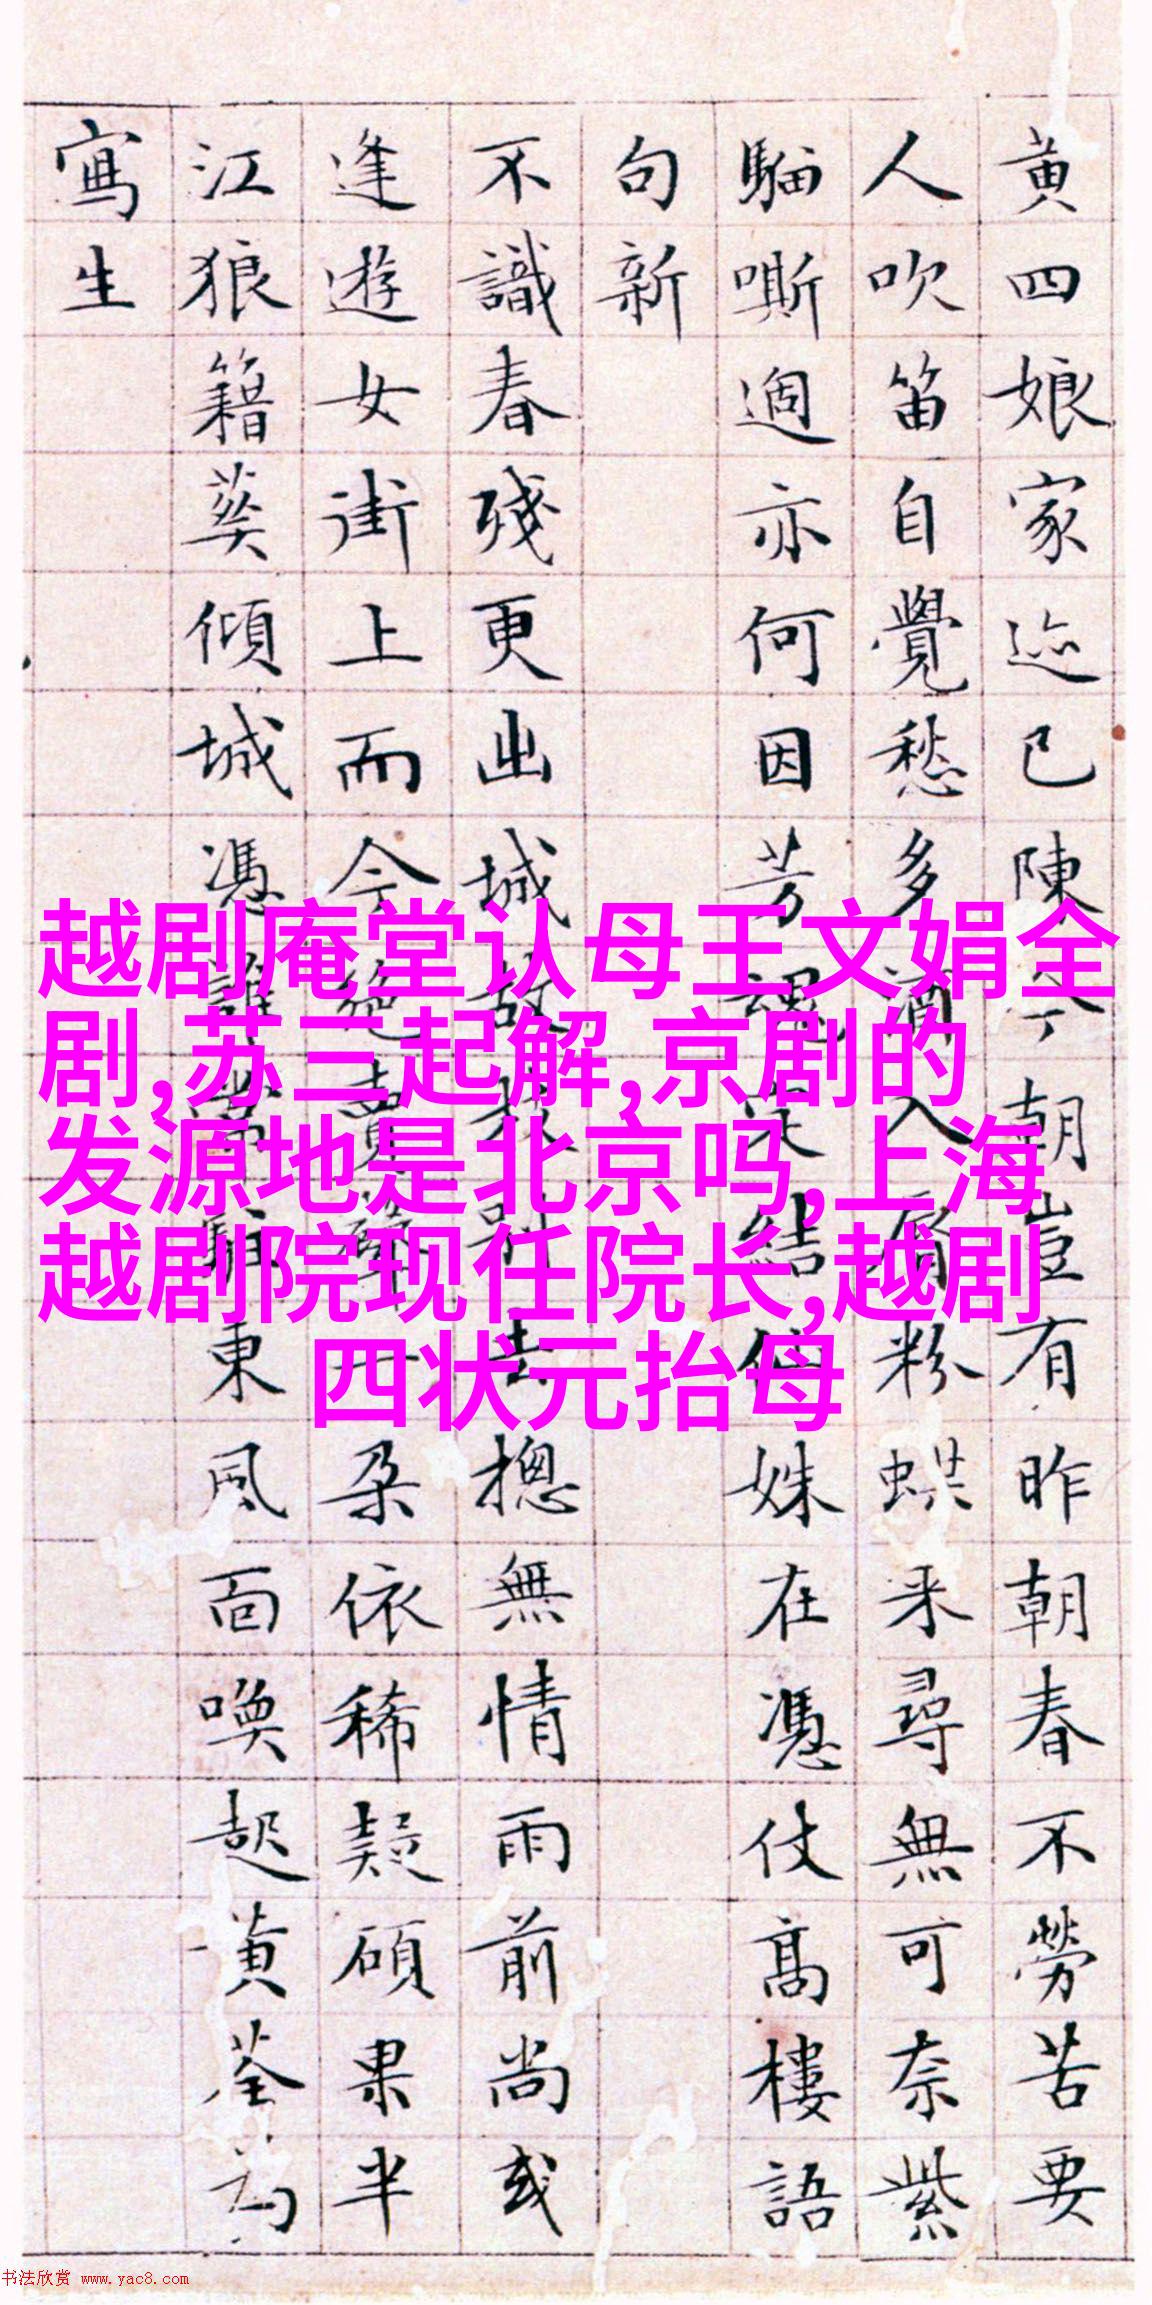 黄四娘家迹已陳今朝豈有昨朝春不勞苦要
人吹笛自覺愁多酒入脣粉蝶来尋無可奈紫
騮嘶過亦何因芳魂定結仙姝在憑仗高樓語
句新
不識春殘更出城故枝別去摠無情雨前尚或
逢遊女街上而今絶賣聲一朵依稀疑碩果半
江狼籍葵傾城憑誰常駐東風面喚起黄荃為
寫生
越剧庵堂认母王文娟全
剧,苏三起解,京剧的
发源地是北京吗,上海
越剧院现任院长,越剧
四状元抬母
书法欣赏 www.yac8.com